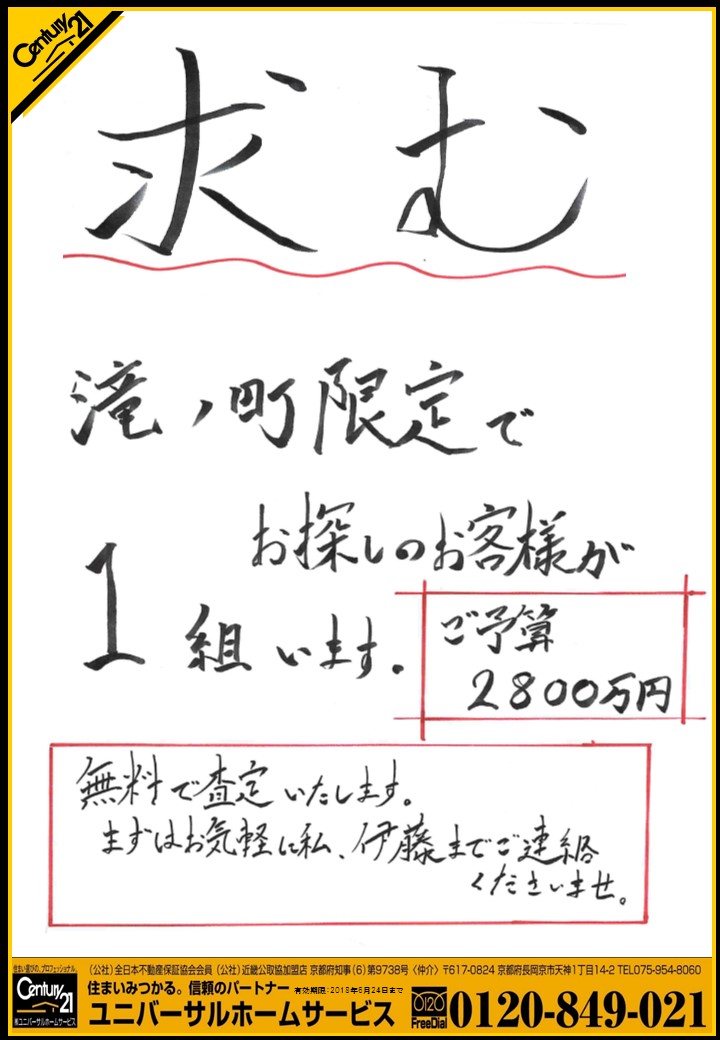 Century 21
求む
滝ノ町限定で
お探しのお客様が
1組います。
ご予算
2800万円
無料で査定いたします。
まずはお気軽に私、伊藤までご連絡
くださいませ。
住まい選びの、プロフェッショナル。
(公社)全日本不動産保証協会会員(公社)近畿公取協加盟店 京都府知事(6)第9738号〈仲介〉〒617-0824 京都府長岡京市天神1丁目14-2 TEL075-954-8060
Century 21
㈱ユニバーサルホームサービス
住まいみつかる。信頼のパートナー
有効期限:2018年6月24日まで
ユニバーサルホームサービス
0120
FreeDial
0120-849-021